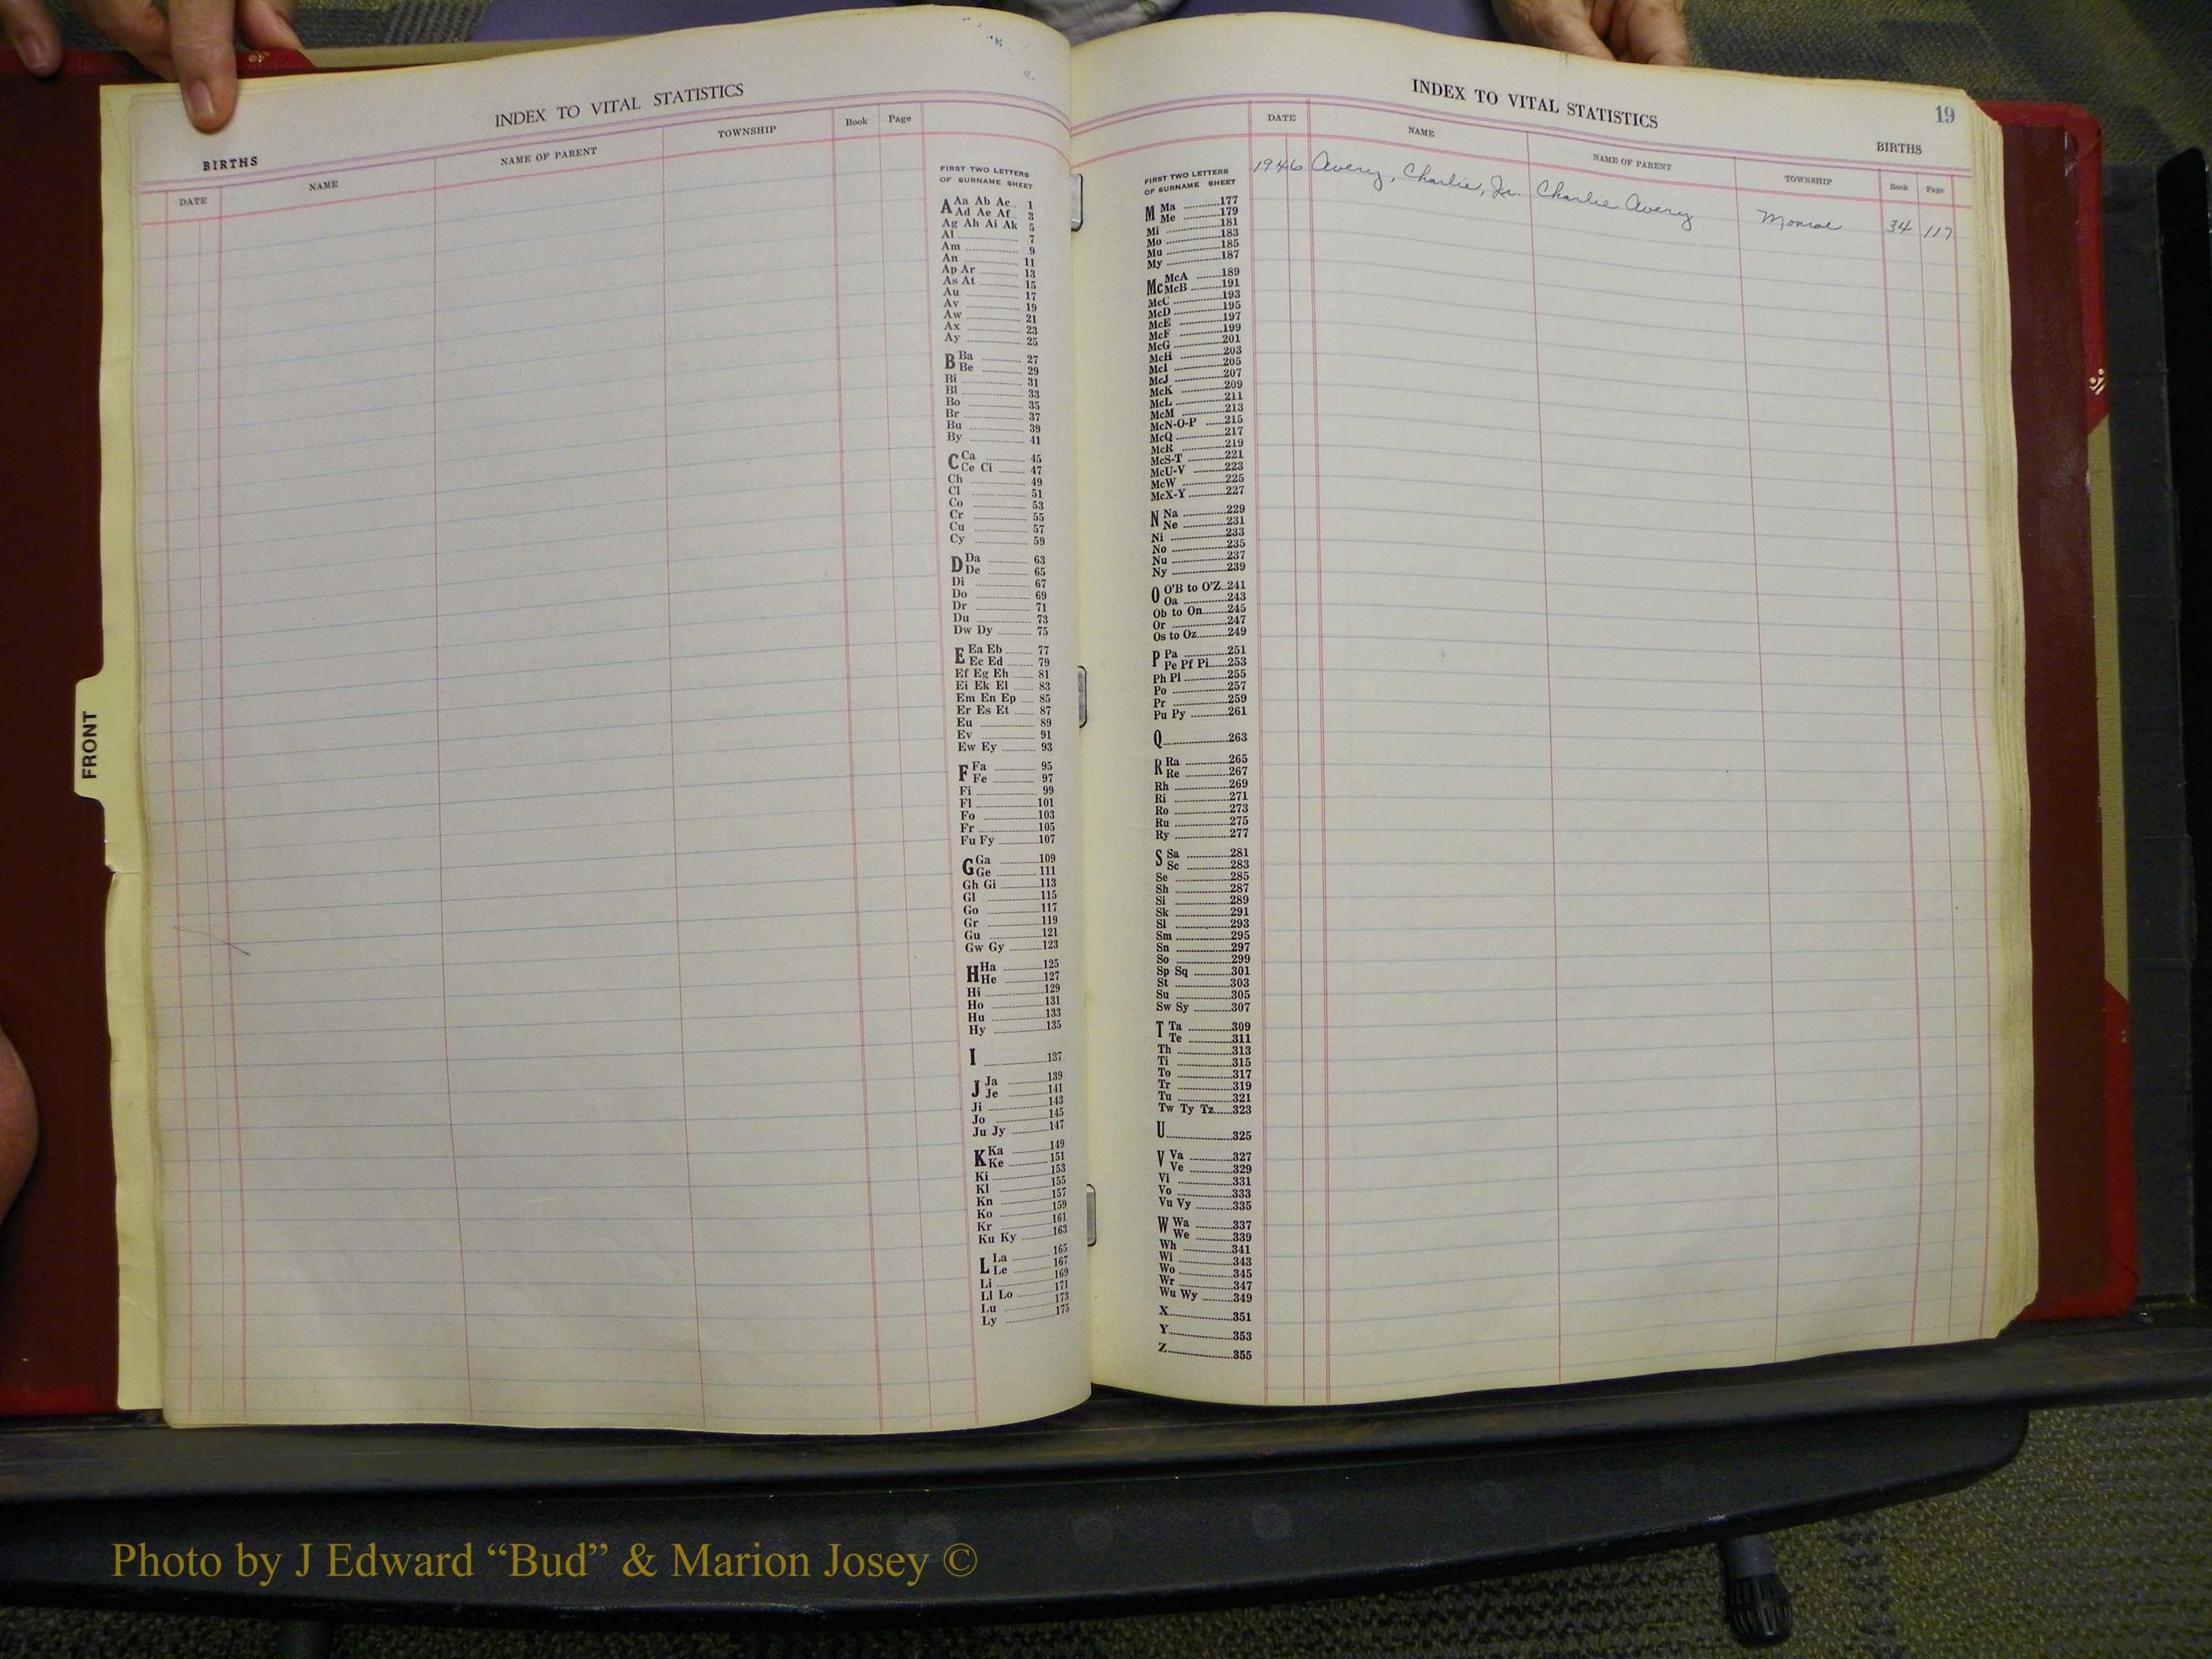 INDEX TO VITAL STATISTICS
BIRTHS
DATE NAME NAME OF PARENT TOWNSHIP Book Page
FIRST TWO LETTERS
OF SURNAME SHEET
A Aa Ab Ac 1
Ad Ae Af 3
Ag Ah Ai Ak 5
Al 7
Am 9
An 11
Ap Ar 13
As At 15
Au 17
Av 19
Aw 21
Ax 23
Ay 25
B Ba 27
Be 29
Bi 31
Bl 33
Bo 35
Br 37
Bu 39
By 41
C Ca 45
Ce Ci 47
Ch 49
Cl 51
Co 53
Cr 55
Cu 57
Cy 59
D Da 63
De 65
Di 67
Do 69
Dr 71
Du 73
Dw Dy 75
E Ea Eb 77
Ec Ed 79
Ef Eg Eh 81
Ei Ek El 83
Em En Ep 85
Er Es Et 87
Eu 89
Ev 91
Ew Ey 93
F Fa 95
Fe 97
Fi 99
Fl 101
Fo 103
Fr 105
Fu Fy 107
G Ga 109
Ge 111
Gh Gi 113
Gl 115
Go 117
Gr 119
Gu 121
Gw Gy 123
H Ha 125
He 127
Hi 129
Ho 131
Hu 133
Hy 135
I 137
J Ja 139
Je 141
Ji 143
Jo 145
Ju Jy 147
K Ka 149
Ke 151
Ki 153
Kl 155
Kn 157
Ko 159
Kr 161
Ku Ky 163
L La 165
Le 167
Li 169
Ll Lo 171
Lu 173
Ly 175
FRONT
INDEX TO VITAL STATISTICS
19
BIRTHS
DATE NAME NAME OF PARENT TOWNSHIP Book Page
1946 Avery, Charlie, Jr. Charlie Avery Monroe 34 117
FIRST TWO LETTERS
OF SURNAME SHEET
M Ma 177
Me 179
Mi 181
Mo 183
Mu 185
My 187
Mc McA 189
McB 191
McC 193
McD 195
McE 197
McF 199
McG 201
McH 203
McI 205
McJ 207
McK 209
McL 211
McM 213
McN-O-P 215
McQ 217
McR 219
McS-T 221
McU-V 223
McW 225
McX-Y 227
N Na 229
Ne 231
Ni 233
No 235
Nu 237
Ny 239
O O'B to O'Z 241
Oa 243
Ob to On 245
Or 247
Os to Oz 249
P Pa 251
Pe Pf Pi 253
Ph Pl 255
Po 257
Pr 259
Pu Py 261
Q 263
R Ra 265
Re 267
Rh 269
Ri 271
Ro 273
Ru 275
Ry 277
S Sa 281
Sc 283
Se 285
Sh 287
Si 289
Sk 291
Sl 293
Sm 295
Sn 297
So 299
Sp Sq 301
St 303
Su 305
Sw Sy 307
T Ta 309
Te 311
Th 313
Ti 315
To 317
Tr 319
Tu 321
Tw Ty Tz 323
U 325
V Va 327
Ve 329
Vi 331
Vo 333
Vu Vy 335
W Wa 337
We 339
Wh 341
Wi 343
Wo 345
Wr 347
Wu Wy 349
X 351
Y 353
Z 355
Photo by J Edward “Bud” & Marion Josey ©